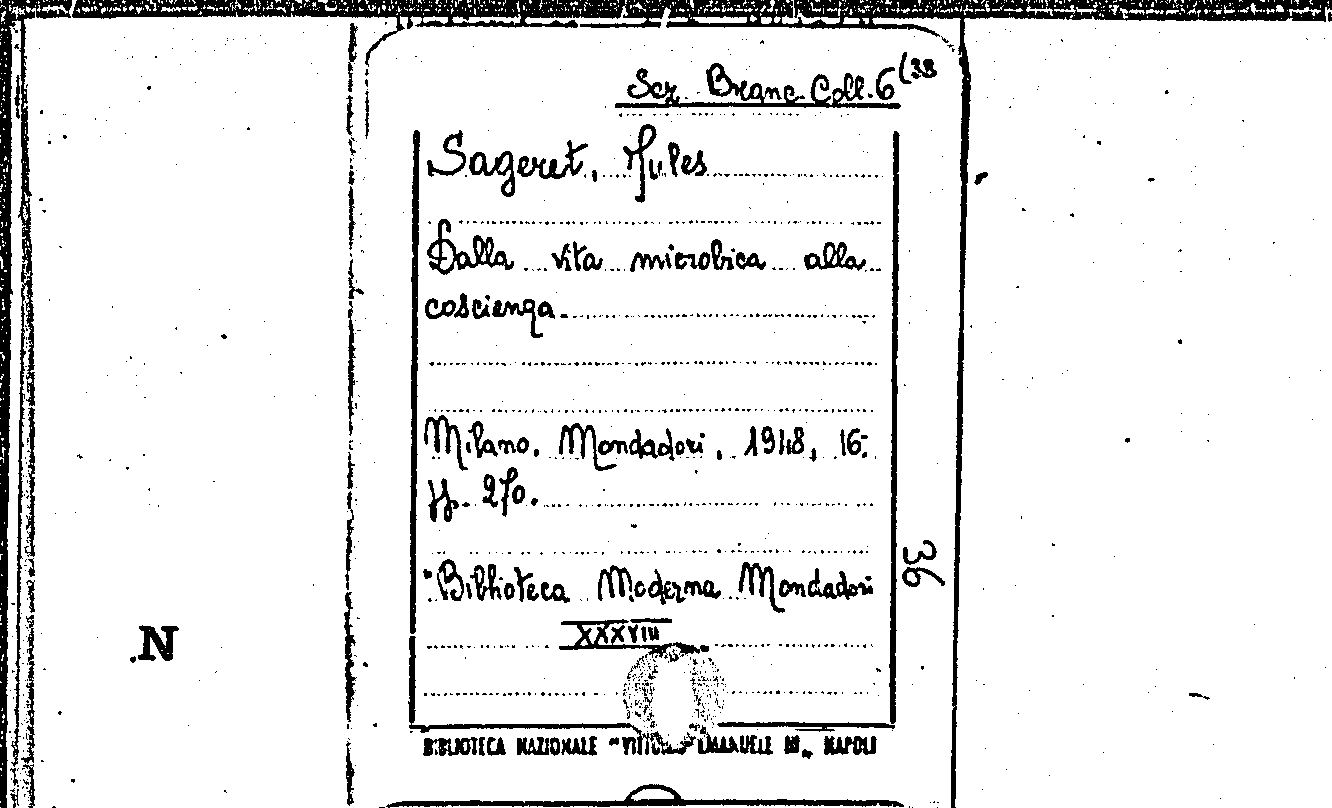 Sez. Branc. Coll. 6 (38
Sageret, Jules
Dalla vita microbica alla
coscienza.
Milano. Mondadori, 1948, 16.
pp. 270.
"Biblioteca Moderna Mondadori
XXXVIII
36
N
BIBLIOTECA NAZIONALE "VITTORIO EMANUELE III„ NAPOLI